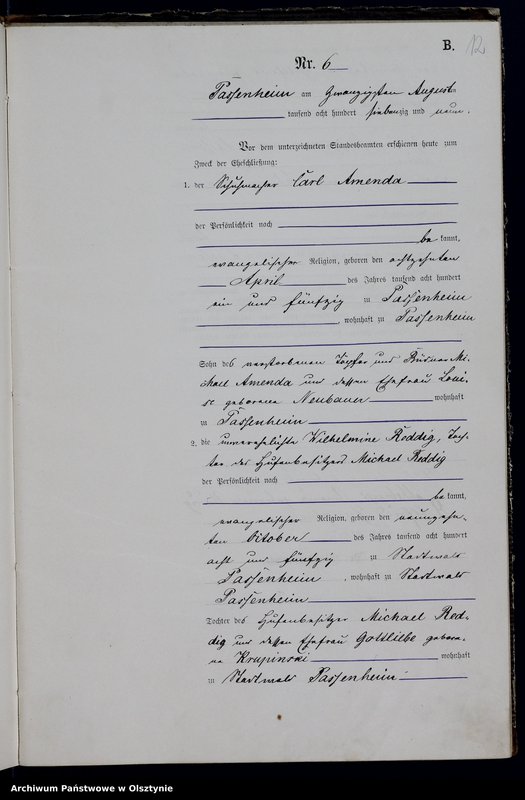 B. 12
Nr. 6
Passenheim am zwanzigsten August
tausend acht hundert siebenzig und neun.
Vor dem unterzeichneten Standesbeamten erschienen heute zum
Zweck der Eheschließung:
1. der Schuhmacher Carl Amenda
der Persönlichkeit nach
be kannt,
evangelischer Religion, geboren den achtzehnten
April des Jahres tausend acht hundert
ein und fünfzig zu Passenheim
, wohnhaft zu Passenheim
Sohn des verstorbenen Töpfer und Mi-
chael Amenda und dessen Ehefrau Loui-
se geborene Neubauer wohnhaft
zu Passenheim
2. die unverehelichte Wilhelmine Reddig, Toch-
ter des Hufenbesitzers Michael Reddig
der Persönlichkeit nach
be kannt,
evangelischer Religion, geboren den neunzehn-
ten October des Jahres tausend acht hundert
acht und fünfzig zu Stadtwald
Passenheim, wohnhaft zu Stadtwald
Passenheim
Tochter des Hufenbesitzer Michael Red-
dig und dessen Ehefrau Gottliebe gebore-
ne Krupinski wohnhaft
zu Stadtwald Passenheim
Archiwum Państwowe w Olsztynie